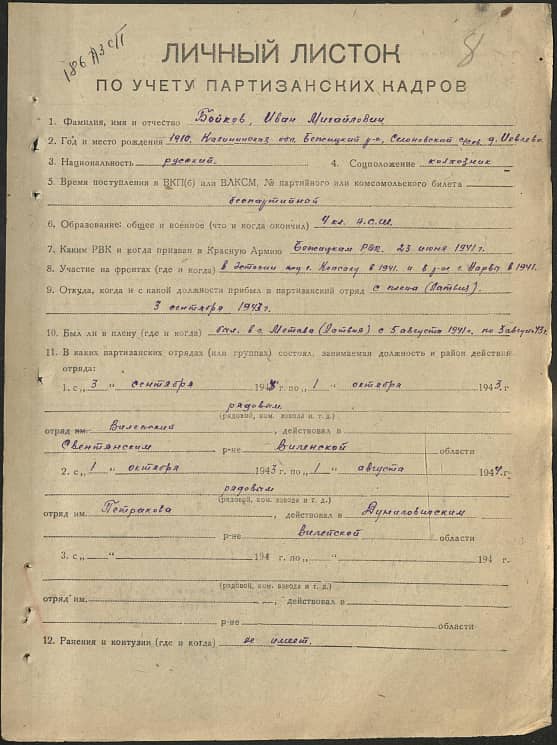 186 АЗСП
8
ЛИЧНЫЙ ЛИСТОК
ПО УЧЕТУ ПАРТИЗАНСКИХ КАДРОВ
1. Фамилия, имя и отчество Бойков, Иван Михайлович
2. Год и место рождения 1910, Калининская обл. Бежецкий р-о, д. Иовлево
3. Национальность русский. 4. Соцположение колхозник
5. Время поступления в ВКП(б) или ВЛКСМ, № партийного или комсомольского билета
беспартийной
6. Образование: общее и военное (что и когда окончил) 4 кл. н.с.ш.
7. Каким РВК и когда призван в Красную Армию Бежецким РВК. 23 июня 1941 г.
8. Участие на фронтах (где и когда) в Эстонии под г. в 1941. и в р-не г. Нарвы в 1941.
9. Откуда, когда и с какой должности прибыл в партизанский отряд с плена (Латвия).
3 сентября 1943 г.
10. Был ли в плену (где и когда) был. в г. Метава (Латвия) с 5 августа 1941 г. по 3 август. 43 г.
11. В каких партизанских отрядах (или группах) состоял, занимаемая должность и район действий
отряда:
1. с „ 3 " сентября 1943 г. по „ 1 " октября 1943. г
рядовым
(рядовой, ком. взвода и т. д.)
отряд им. Виленский, действовал в
Свентянским р-не Виленской области
2. с „ 1 " октября 1943 г. по „ 1 " августа 1944. г.
рядовым
(рядовой, ком. взвода и т. д.)
отряд им. Петракова, действовал в Дуниловичским
р-не Вилепской области
3. с „ " 194 г. по „ " 194 г.
(рядовой, ком. взвода и т. д.)
отряд им. , действовал в
р-не области
12. Ранения и контузии (где и когда) не имеет.